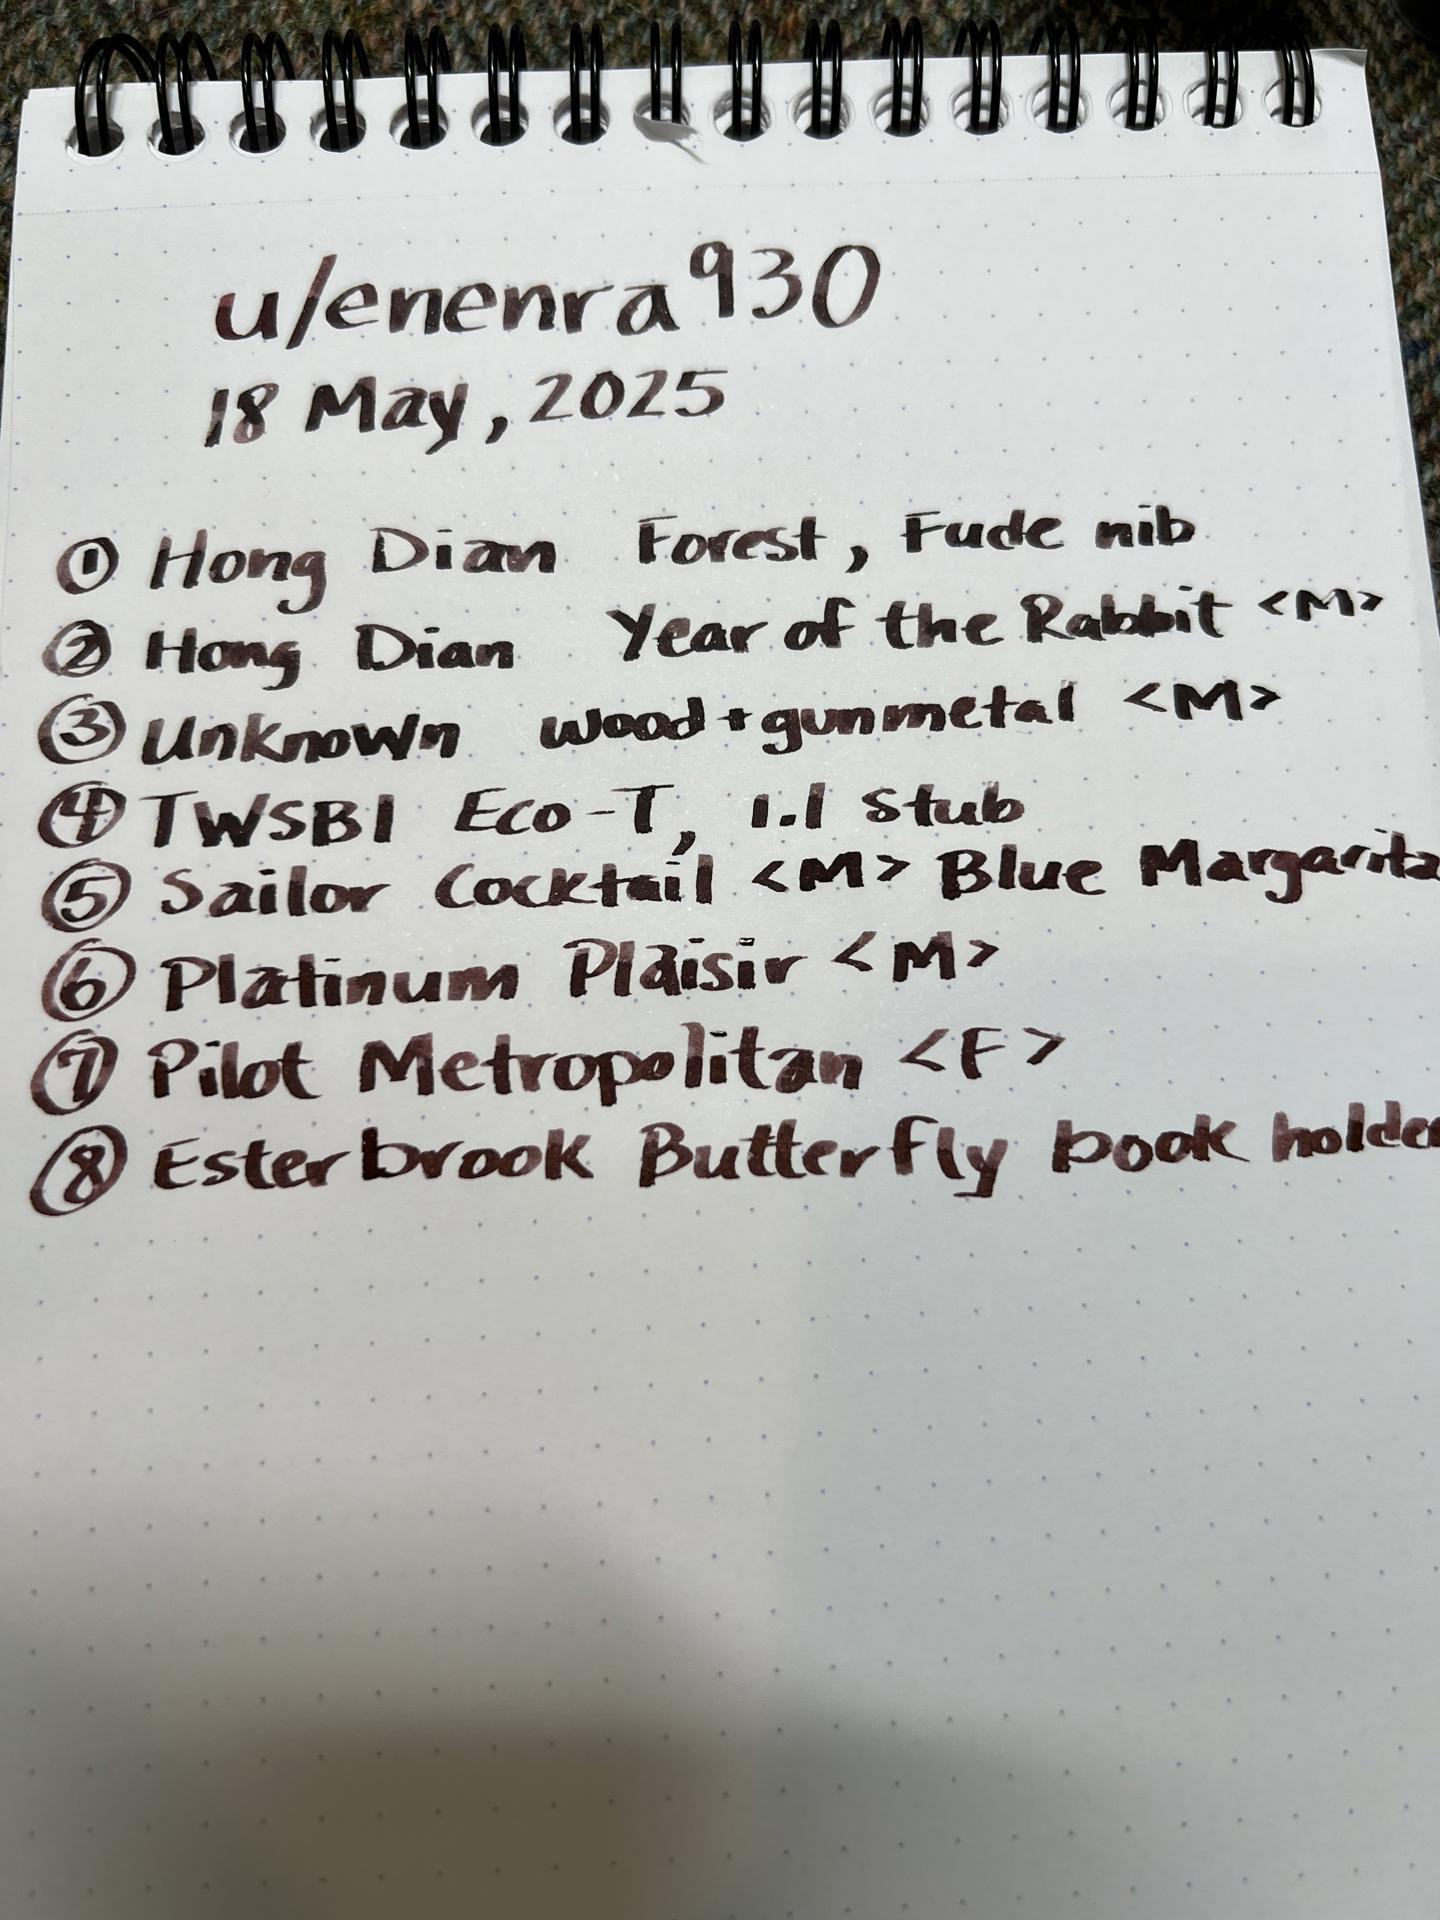 u/enenra930
18 May, 2025
① Hong Dian Forest, Fude nib
② Hong Dian Year of the Rabbit <M>
③ Unknown wood + gunmetal <M>
④ TWSBI Eco-T, 1.1 Stub
⑤ Sailor Cocktail <M> Blue Margarita
⑥ Platinum Plaisir <M>
⑦ Pilot Metropolitan <F>
⑧ Esterbrook Butterfly book holder